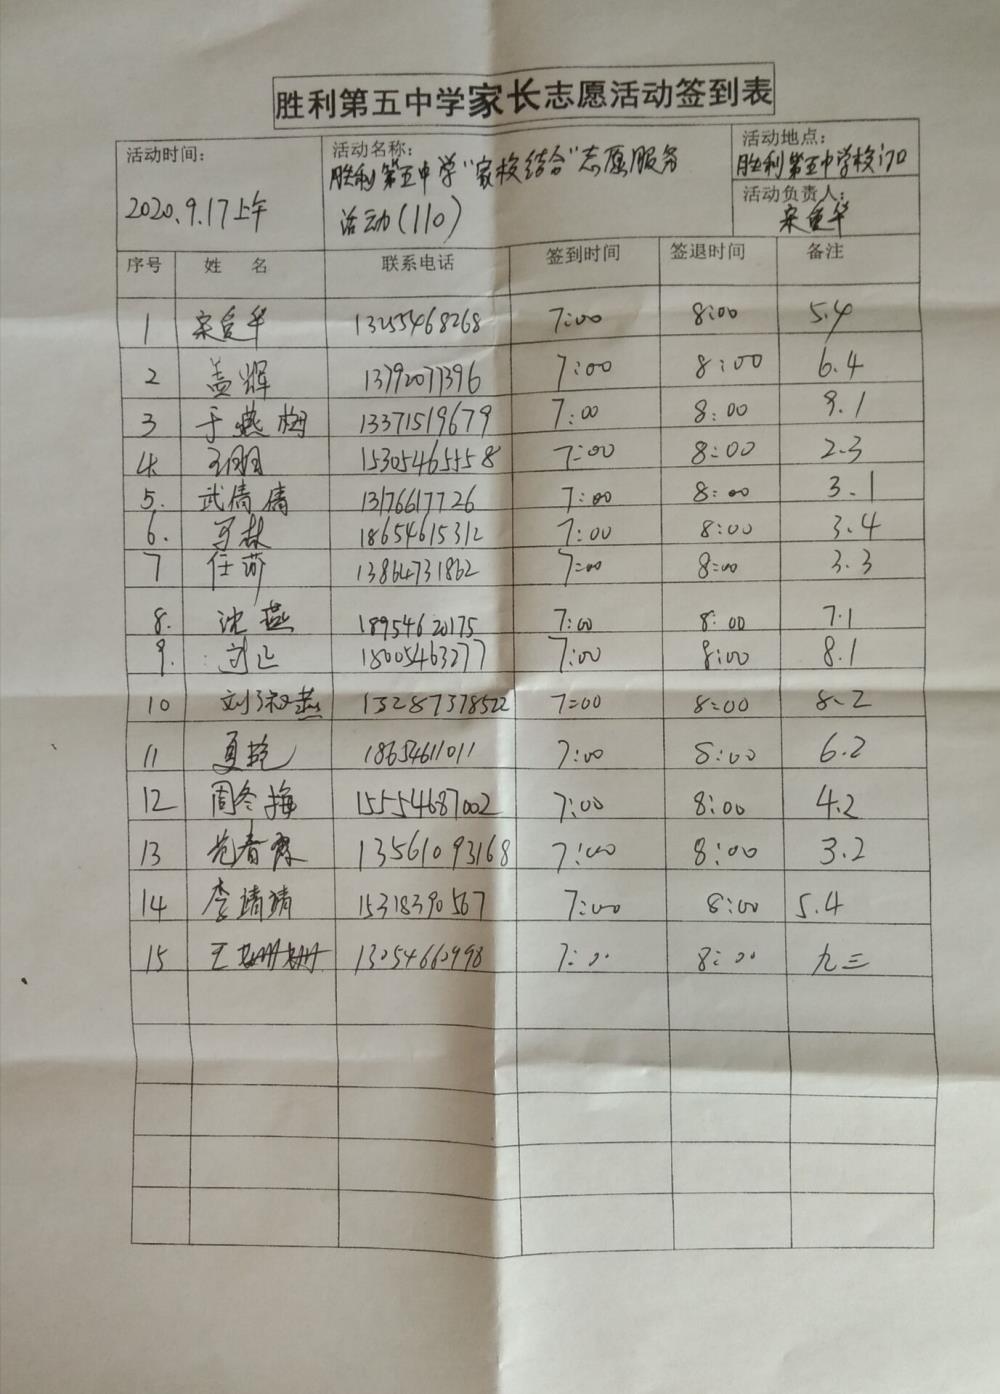 胜利第五中学家长志愿活动签到表
活动时间:
2020.9.17上午
活动名称:
胜利第五中学“家校结合”志愿服务
活动(110)
活动地点:
胜利第五中学校门口
活动负责人:
序号 姓 名 联系电话 签到时间 签退时间 备注
1 13255468268 7:00 8:00 5.4
2 盖辉 13792071396 7:00 8:00 6.4
3 于燕梅 13371519679 7:00 8:00 9.1
4. 15305465558 7:00 8:00 2.3
5. 武倩倩 13176617726 7:00 8:00 3.1
6. 18654615312 7:00 8:00 3.4
7 任莎 13864731862 7:00 8:00 3.3
8. 沈燕 18954620175 7:00 8:00 7.1
9. 18005463277 7:00 8:00 8.1
10 刘淑燕 15287378522 7:00 8:00 8.2
11 夏艳 18654611011 7:00 8:00 6.2
12 周冬梅 15554687002 7:00 8:00 4.2
13 范春霖 13561093168 7:00 8:00 3.2
14 李靖靖 15318390567 7:00 8:00 5.4
15 王姗姗 13054660998 7:00 8:00 九三